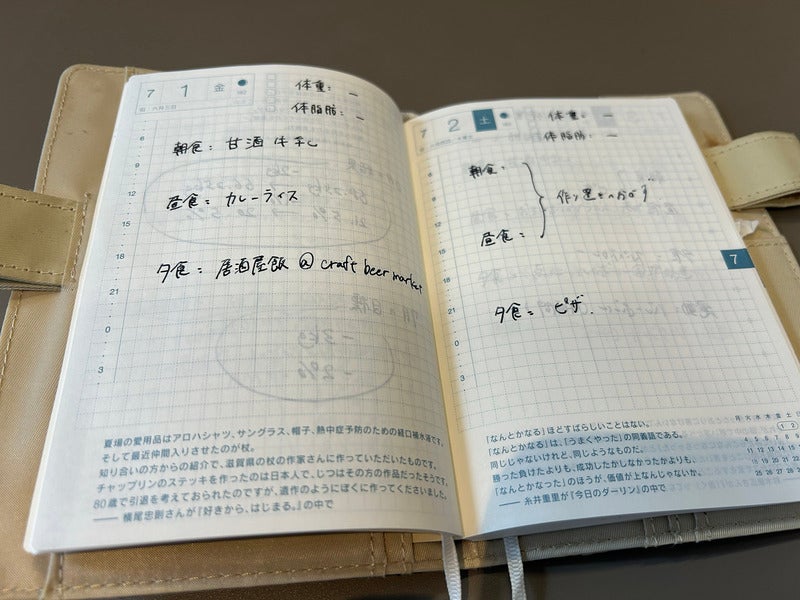 7 1 金
体重: —
体脂肪: —
6
朝食: 甘酒牛乳
9
12
昼食: カレーライス
15
18
夕食: 居酒屋飯 @ craft beer market
21
0
3
夏場の愛用品はアロハシャツ、サングラス、帽子、熱中症予防のための経口補水液です。
そして最近仲間入りさせたのが杖。
知り合いの方からの紹介で、滋賀県の杖の作家さんに作っていただいたものです。
チャップリンのステッキを作ったのは日本人で、じつはその方の作品だったそうです。
80歳で引退を考えておられたのですが、遺作のようにぼくに作ってくださいました。
—— 横尾忠則さんが『好きから、はじまる。』の中で
7 2 土
体重: —
体脂肪: —
6
朝食:
9
作り置きのおかず
12
昼食:
15
7
18
21
夕食: ピザ.
0
3
「なんとかなる」ほどすばらしいことはない。
「なんとかなる」は、「うまくやった」の同義語である。
同じじゃないけれど、同じようなものだ。
勝った負けたよりも、成功したしなかったかよりも、
「なんとかなった」のほうが、価値が上なんじゃないか。
—— 糸井重里が『今日のダーリン』の中で
月 火 水 木 金 土
1 2
4 5 6 7 8
11 12 13 14 15
18 19 20 21 22
25 26 27 28